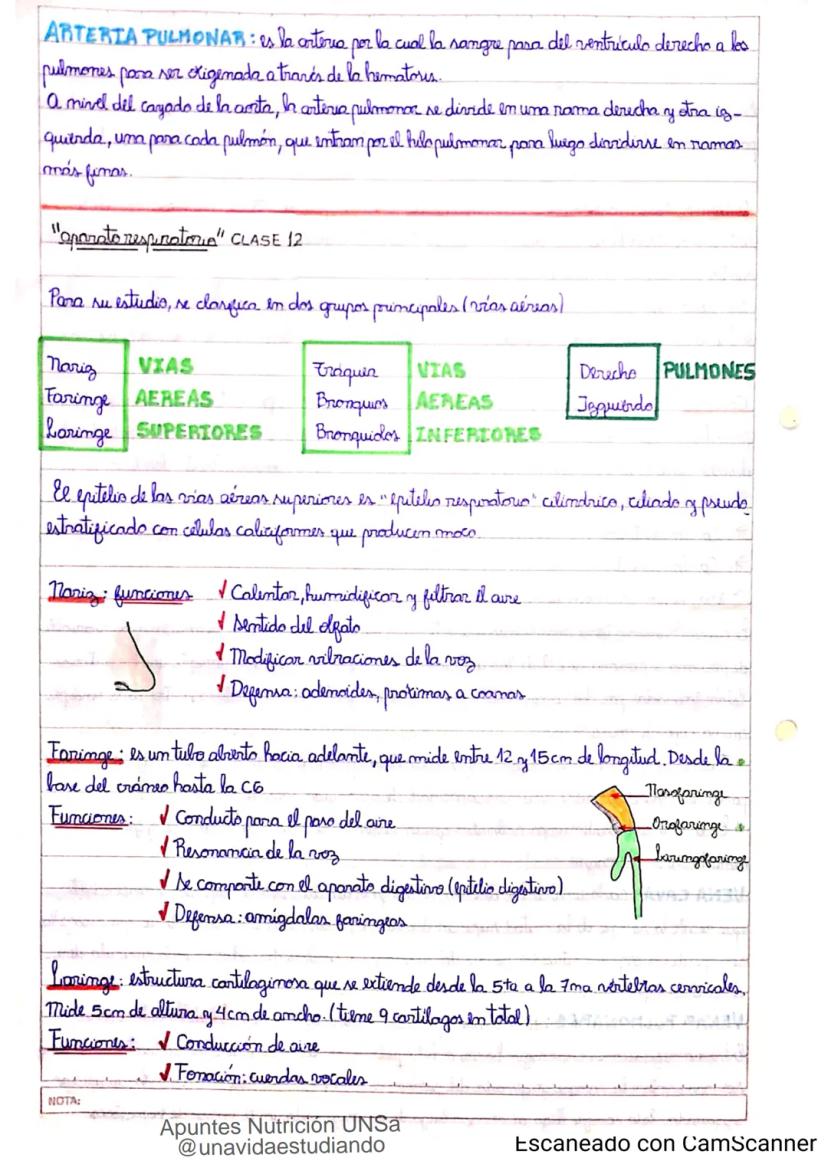 ARTERIA PULMONAR: es la arteria por la cual la sangre pasa del ventrículo derecho a los
pulmones para ser oxigenada a través de la hematosis.
A nivel del cayado de la aorta, la arteria pulmonar se divide en una rama derecha y otra iz-
quierda, una para cada pulmón, que entran por el hilo pulmonar para luego dividirse en ramas
más finas.
"aparato respiratorio" CLASE 12
Para su estudio, se clasifica en dos grupos principales (vías aéreas)
Nariz
Faringe
Laringe
VIAS
AEREAS
SUPERIORES
Tráquea
Bronquios
Bronquiolos
VIAS
AEREAS
INFERIORES
Derecho
Izquierdo
PULMONES
El epitelio de las vías aéreas superiores es "epitelio respiratorio" cilíndrico, ciliado y pseudo
estratificado con células caliciformes que producen moco.
Nariz: funciones
✓ Calentar, humidificar y filtrar el aire
✓ Sentido del olfato
✓ Modificar vibraciones de la voz
✓ Defensa: adenoides, próximas a coanas
Faringe: es un tubo abierto hacia adelante, que mide entre 12 y 15cm de longitud. Desde la
base del cráneo hasta la C6
Funciones: ✓ Conducto para el paso del aire
✓ Resonancia de la voz
✓ Se comparte con el aparato digestivo (epitelio digestivo)
✓ Defensa: amígdalas faríngeas
Nasofaringe
Orofaringe
Laringofaringe
Laringe: estructura cartilaginosa que se extiende desde la 5ta a la 7ma vértebras cervicales.
Mide 5cm de altura y 4cm de ancho. (tiene 9 cartílagos en total)
Funciones: ✓ Conducción de aire
✓ Fonación: cuerdas vocales
NOTA:
Apuntes Nutrición UNSa
@unavidaestudiando
Escaneado con CamScanner